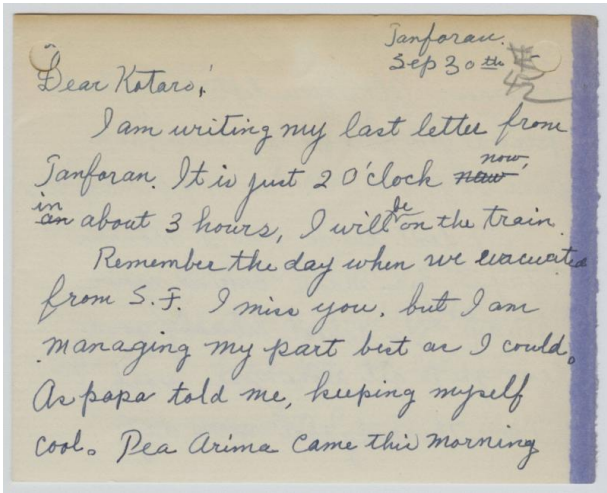 Tanforan.
Sep 30th
42
Dear Kotaro,
I am writing my last letter from
Tanforan. It is just 2 O'clock now,
in about 3 hours, I will be on the train.
Remember the day when we evacuated
from S.F. I miss you, but I am
managing my part best as I could.
As papa told me, keeping myself
cool. Arima came this morning